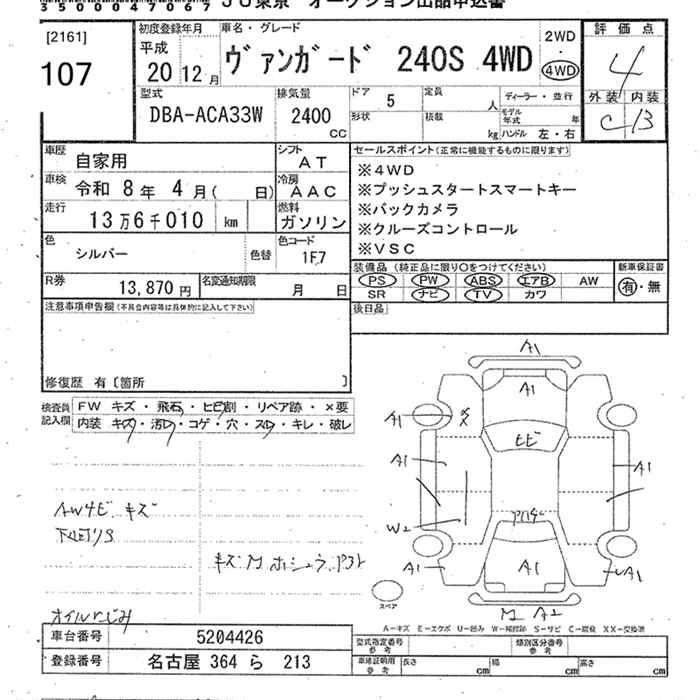 35000047007 JU東京 オークション出品申込書
[2161]
107
初度登録年月
平成
20 12月
車名・グレード
ヴァンガード 240S 4WD
2WD
・
4WD
評価点
4
外装 内装
C B
型式
DBA-ACA33W
排気量
2400
CC
ドア
5
定員
人
ディーラー・並行
形状
積載
kg
モデル年式
年
ハンドル 左・右
車歴
自家用
シフト
AT
車検
令和 8年 4月( 日)
冷房
AAC
走行
13万6千010 km
燃料
ガソリン
色
シルバー
色替
色コード
1F7
R券
13,870円
名変通知期限
月 日
セールスポイント(正常に機能するものに限ります)
※4WD
※プッシュスタートスマートキー
※バックカメラ
※クルーズコントロール
※VSC
装備品 (純正品に限り○をつけてください)
新車保証書
PS PW ABS エアB AW
SR ナビ TV カワ
有・無
後日品
注意事項申告欄(不具合内容等は具体的に記入して下さい)
修復歴 有〔箇所 〕
検査員
記入欄
FW キズ・飛石・ヒビ割・リペア跡・×要
内装 キズ・汚レ・コゲ・穴・スレ・キレ・破レ
AWサビ キズ
下回りS
キズ M ホシュウ アト
オイルにじみ
A1
A1
A1
ヒビ
A1
A1
W2
A1
A1
A1
M A2
スペア
A-キズ E-エクボ U-凹み W-補修跡 S-サビ C-腐食 XX-交換済
車台番号
5204426
登録番号
名古屋 364 ら 213
型式指定番号
参考
類別区分番号
参考
車庫証明用
参考
長さ
cm
幅
cm
高さ
cm